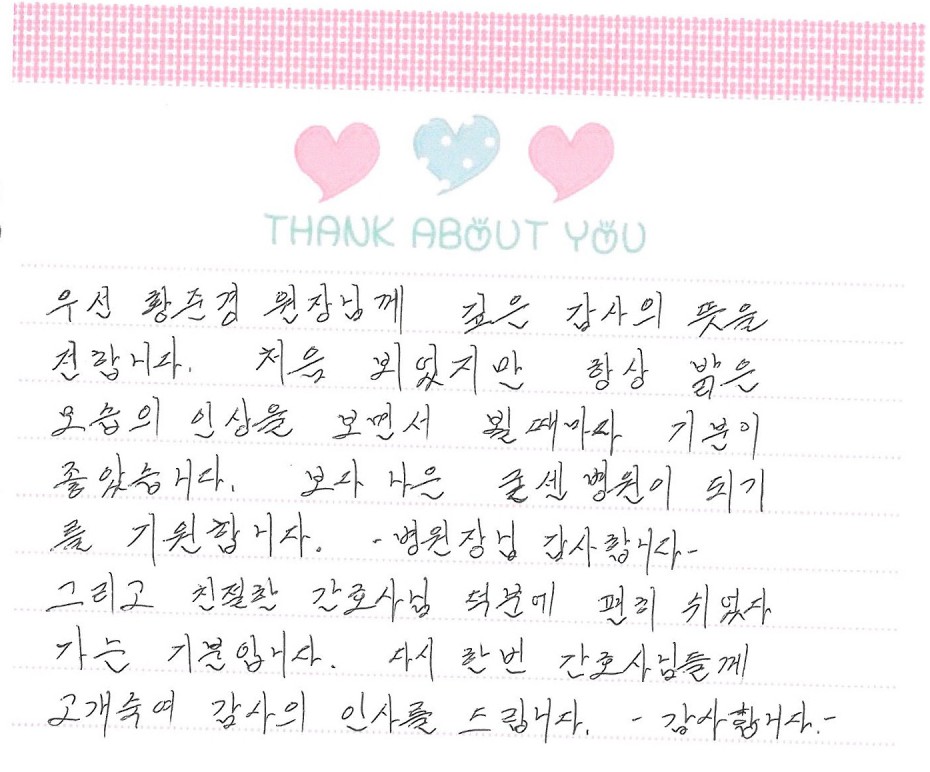 THANK ABOUT YOU
우선 황준경 원장님께 깊은 감사의 뜻을
전합니다. 처음 뵈었지만 항상 밝은
모습의 인상을 보면서 뵐때마다 기분이
좋았습니다. 보다 나은 굳센병원이 되기
를 기원합니다. -병원장님 감사합니다-
그리고 친절한 간호사님 덕분에 편히 쉬었다
가는 기분입니다. 다시 한번 간호사님들께
고개숙여 감사의 인사를 드립니다. -감사합니다.-